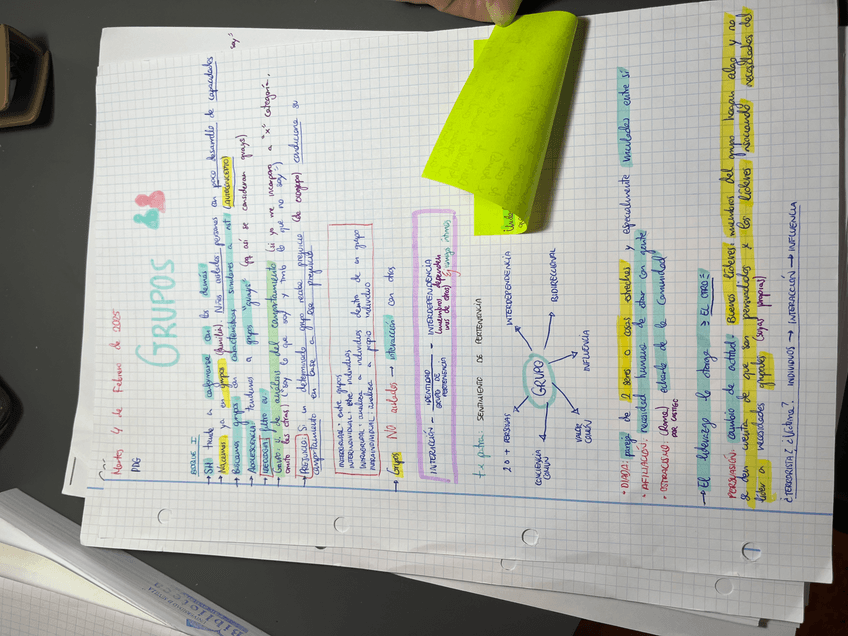 Martes 4 de Febrero de 2025
PDG
GRUPOS
BLOQUE I
→ SH tiende a conformarse con los demás
→ Nacemos ya en grupos (familia) Niños aislados personas con poco desarrollo de capacidades
→ grupos con características similares a mí (AUTOCONCEPTO)
→ ADOLESCENCIA tendemos a grupos "guays" (pq así se consideran guays)
soy
→ IDENTIDAD
→ Grupo: U. de análisis del comportamiento (si yo me incorporo a "x" categoría,
omito las otras) ("soy lo que soy y tmb lo que no soy")
→ PREJUICIO Si un determinado grupo recibe prejuicio (de ) condiciona su
comportamiento en base a ese prejuicio
INTERGRUPAL: entre grupos
INTERINDIVIDUAL: entre individuos
INTRAGRUPAL: analiza a individuos dentro de un grupo
INTRAINDIVIDUAL: analiza a propio individuo
→ Grupos NO aislados → interacción con otros
INTERACCIÓN - IDENTIDAD - INTERDEPENDENCIA
GRUPO DE PERTENENCIA
(miembros dependen
unos de otros)
SENTIMIENTO DE PERTENENCIA
2 o + PERSONAS
INTERDEPENDENCIA
CONCIENCIA
COMÚN
GRUPO
BIDIRECCIONAL
COMÚN
INFLUENCIA
• DIADA: pareja de 2 seres o cosas estrechas y especialmente vinculadas entre sí
• AFILIACIÓN: necesidad humana de estar con gente
• OSTRACISMO (Roma) echarte de la comunidad
POR CASTIGO
→ El liderazgo lo otorga EL OTRO
PERSUASIÓN: cambio de actitud. Buenos líderes: miembros del grupo hagan algo y no
se den cuenta de que son persuadidos x los líderes necesidades del
líder a necesidades grupales (sigas propias)
¿TERRORISTA? ¿Víctima? INDIVIDUOS → INTERACCIÓN → INFLUENCIA
Biblioteca